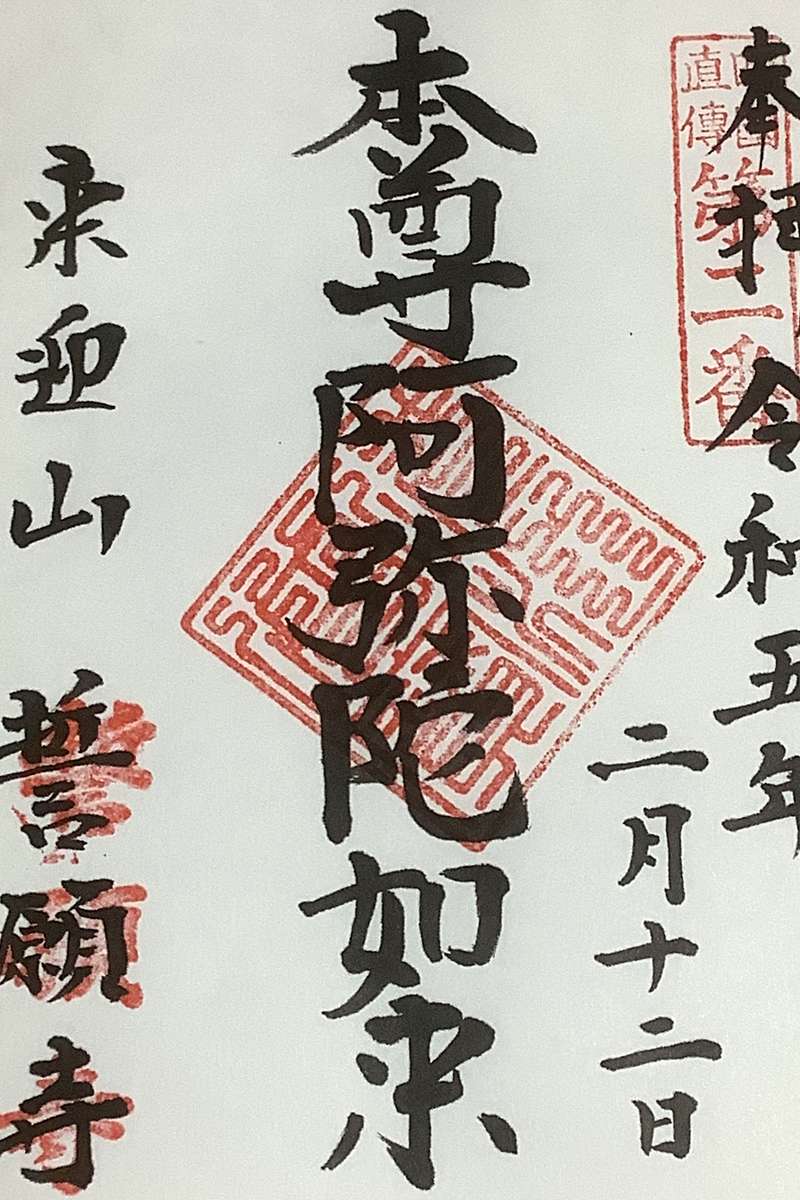 奉拝 令和五年
直傳
第二番
二月十二日
本尊阿弥陀如来
来迎山 誓願寺